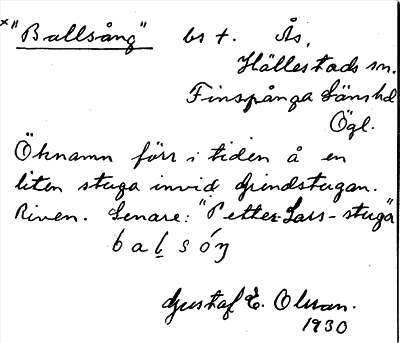 *"Ballsång" bs t. Ås,
Hällestads sn.
Finspånga länshd
Ögl.
Öknamn förr i tiden å en
liten stuga invid Grindstugan.
Riven. Senare: "Petter-Lars-stuga"
baḷsóŋ
Gustaf E. Olsson.
1930